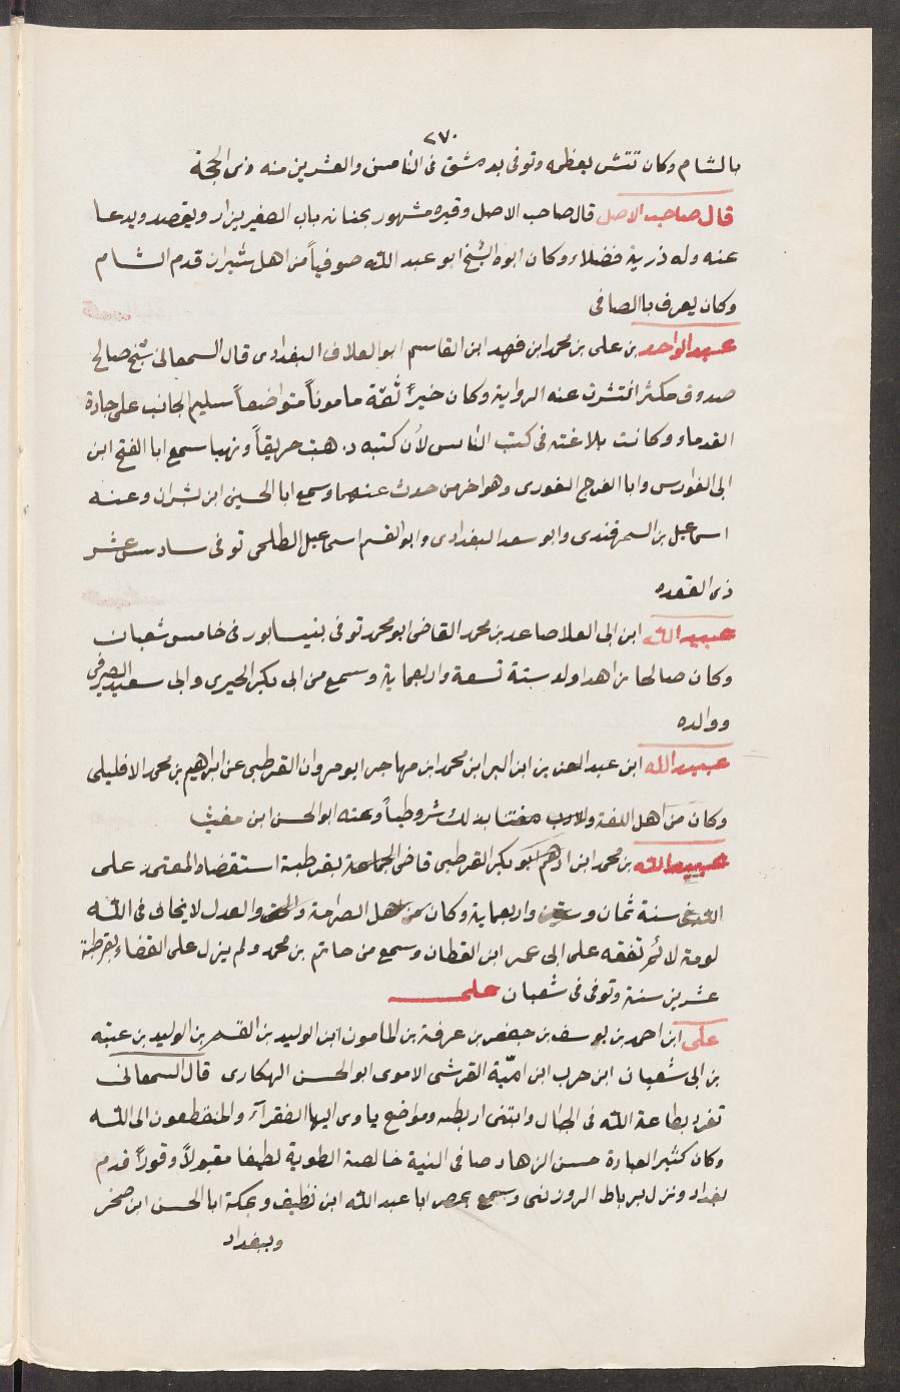 ٢٧٠
بالشام وكان تتش يعظمه وتوفى بدمشق فى الثامن والعشرين منه ذى الحجة
قال صاحب الاصل قال صاحب الاصل وقبره مشهور بجنانه باب الصغير يزار ويقصد ويدعا
عنه وله ذرية فضلاء وكان ابوه الشيخ ابو عبد الله صوفياً من اهل شيراز قدم الشام
وكان يعرف بالصافى
عبد الواحد بن على بن محمد ابن فهد ابن القاسم ابو العلاف البغدادى قال السمعانى شيخ صالح
صدوق مكثر انتشرت عنه الرواية وكان خيراً ثقة ماموناً متواضعاً سليم الجانب على جادة
القدماء وكانت بلاغته فى كتب الناس لأن كتبه ذهبت حريقاً ونهبا سمع ابا الفتح ابن
ابى الفوارس وابا الفرج الغورى وهو اخر من حدث عنهما وسمع ابا الحسين ابن بشران وعنه
اسماعيل بن السمرقندى وابو سعد البغدادى وابو القسم اسماعيل الطلحى توفى سادس عشر
ذى القعده
عبيد الله ابن ابى العلا صاعد بن محمد القاضى ابو محمد توفى بنيسابور فى خامس شعبان
وكان صالحا زاهدا ولد سنة تسعة واربعماية وسمع من ابى بكر الحيرى وابى سعيد الصيرفى
ووالده
عبيد الله ابن عبد العزيز ابن البرا ابن محمد ابن مهاجر ابو مروان القرطبى عن ابراهيم بن محمد الافليلى
وكان من اهل اللغة والادب مفتنا بذلك شروطياً وعنه ابو الحسن ابن مغيث
عبيد الله بن محمد ابن ادهم ابو بكر القرطبى قاضى الجماعة بقرطبة استقضاه المعتمد على
الله فى سنة ثمان وستين واربعماية وكان من اهل الصرامة والحق والعدل لا يخاف فى الله
لومة لائم تفقه على ابى عمر ابن القطان وسمع من حاتم بن محمد ولم يزل على القضاء بقرطبة
عشرين سنة وتوفى فى شعبان على
على ابن احمد بن يوسف بن جعفر بن عرفة بن المامون ابن الوليد بن القسم بن الوليد بن عتبه
بن ابى شعبان ابن حرب ابن اميّة القرشى الاموى ابو الحسن الهكارى قال السمعانى
تفرد بطاعة الله فى الجبال وابتنى اربطه ومواضع ياوى اليها الفقراء والمنقطعون الى الله
وكان كثير العبادة حسن الزهاد صافى النية خالصة الطوية لطيفا مقبولاً وقوراً قدم
بغداد ونزل برباط الزوزنى وسمع بمصر ابا عبد الله ابن نظيف وبمكة ابا الحسن ابن صخر
وببغداد